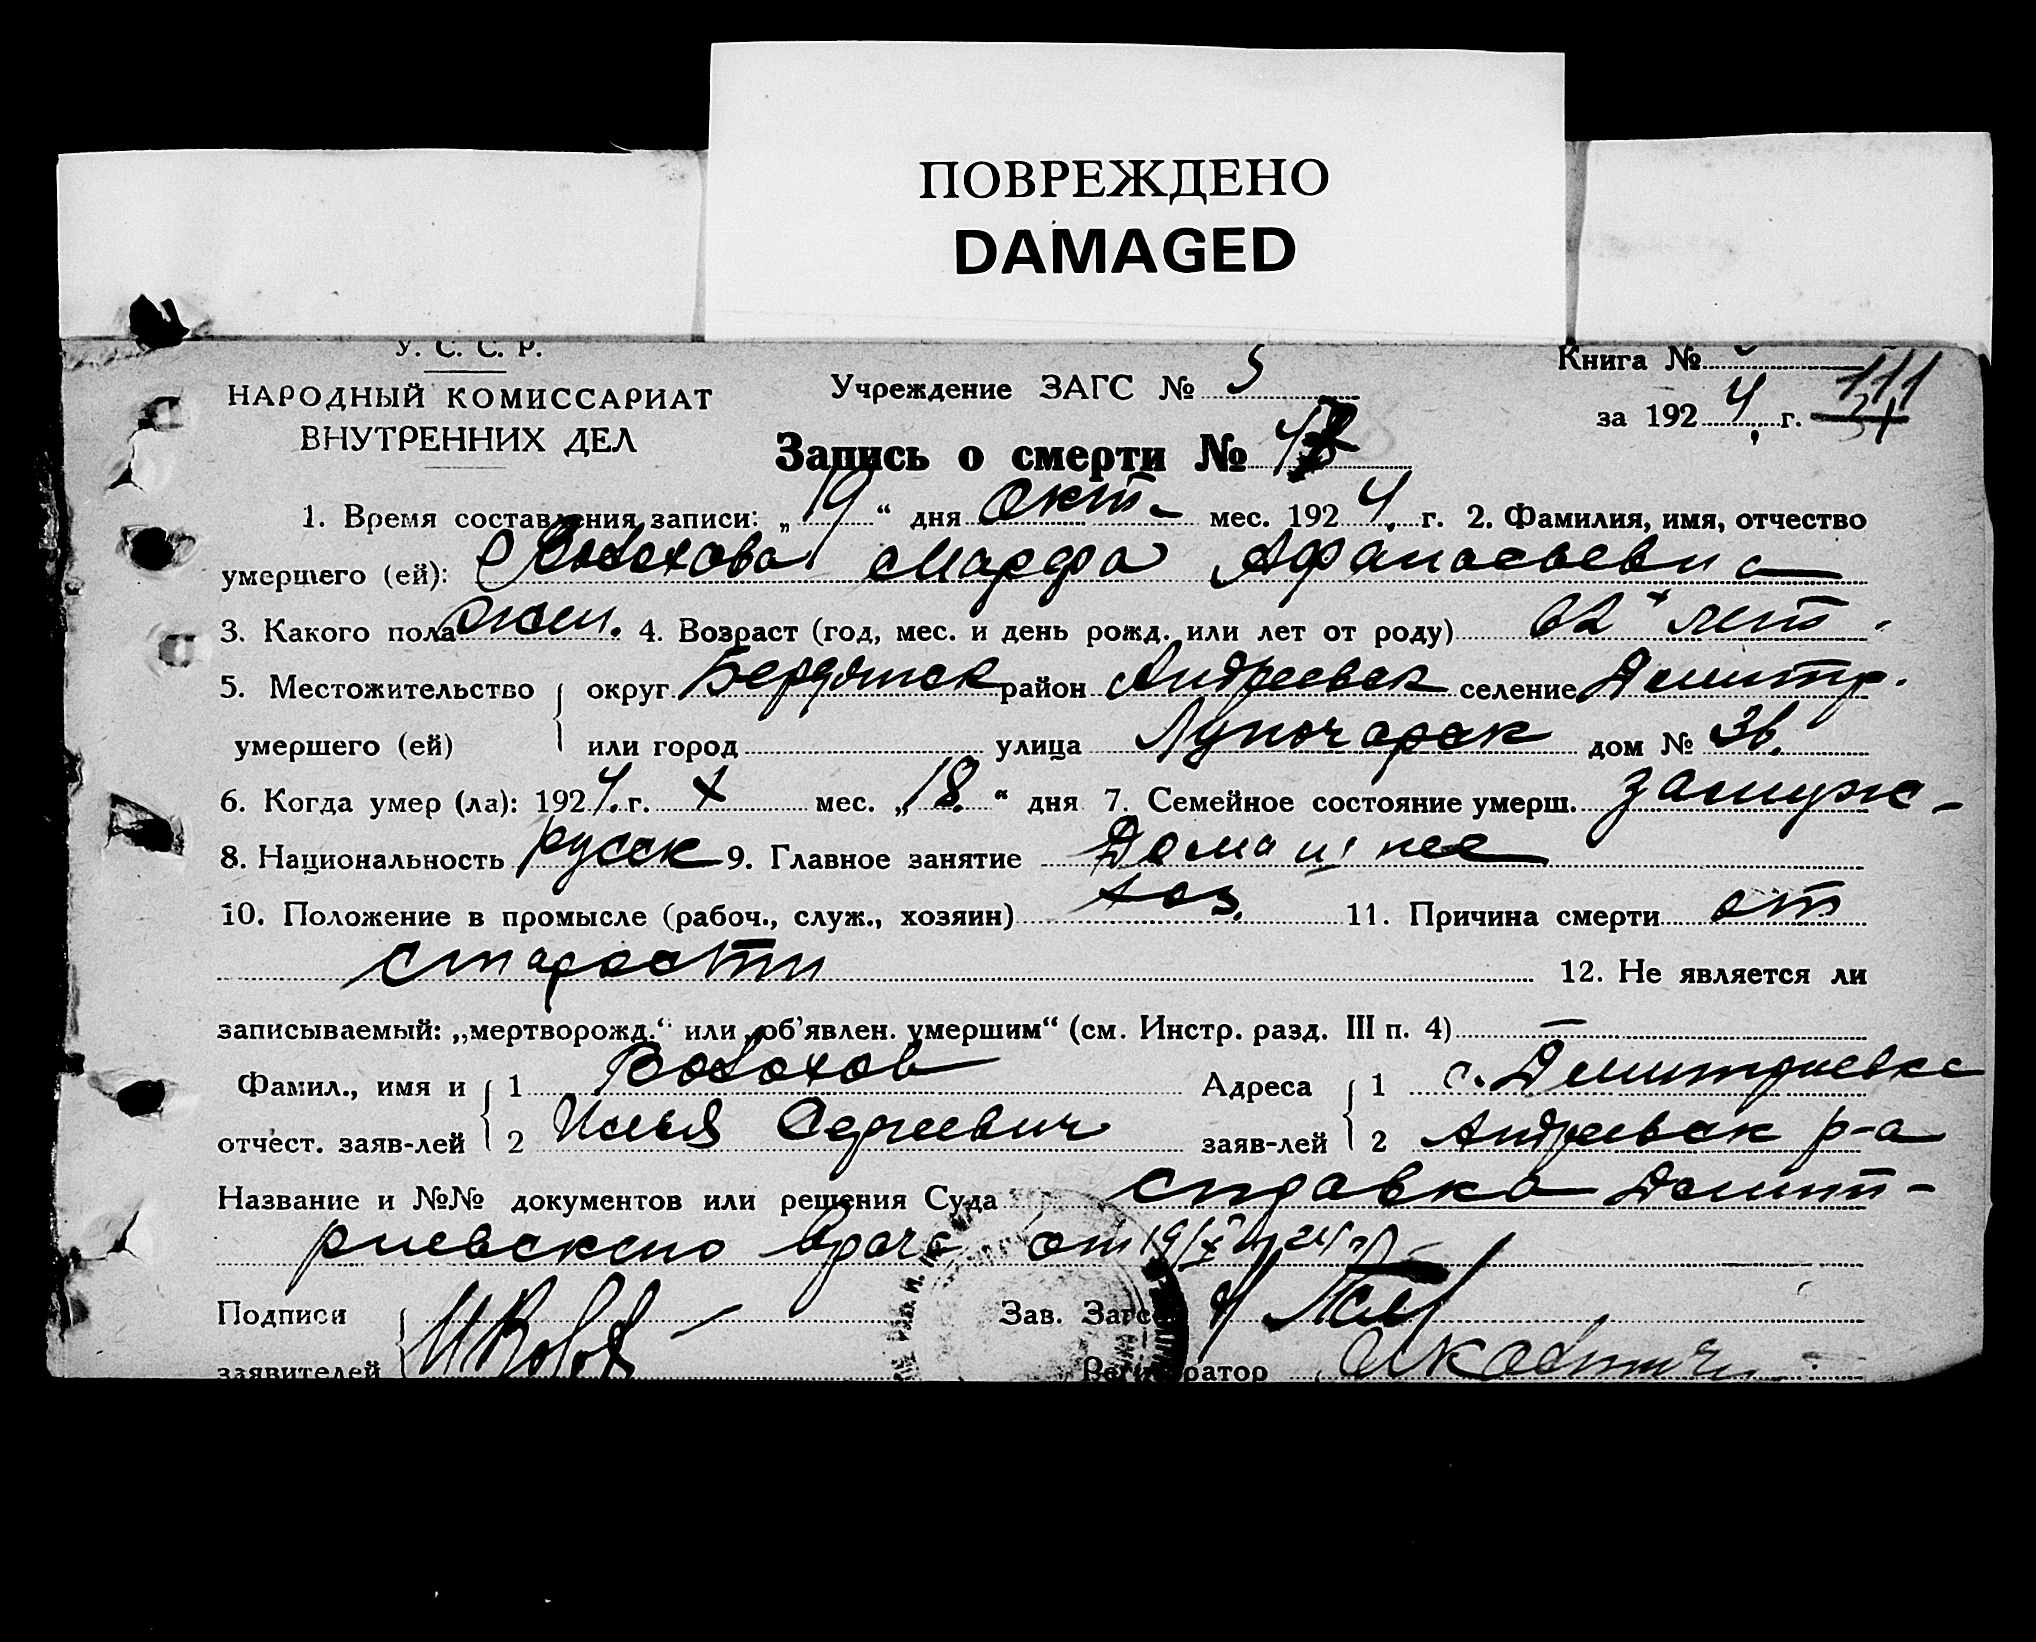 ПОВРЕЖДЕНО
DAMAGED
У. С. С. Р.
НАРОДНЫЙ КОМИССАРИАТ
ВНУТРЕННИХ ДЕЛ
Учреждение ЗАГС № 5
Книга №
за 1924 г. 111
Запись о смерти № 48
1. Время составления записи: „19“ дня Окт- мес. 1924 г. 2. Фамилия, имя, отчество
умершего (ей): Волохова Марфа Афанасьевна
3. Какого пола жен. 4. Возраст (год, мес. и день рожд. или лет от роду) 62 лет.
5. Местожительство округ Бердянск район Андреевск селение Дмитр.
умершего (ей) или город улица Луночарск дом № 36.
6. Когда умер (ла): 1924 г. X мес. „18.“ дня 7. Семейное состояние умерш. замуж-
8. Национальность русск 9. Главное занятие Домашнее
10. Положение в промысле (рабоч., служ., хозяин) хоз. 11. Причина смерти от
старости 12. Не является ли
записываемый: „мертворожд.“ или „об’явлен. умершим“ (см. Инстр. разд. III п. 4) —
Фамил., имя и 1 Волохов Адреса 1 с. Дмитриевка
отчест. заяв-лей 2 Илья Сергеевич заяв-лей 2 Андреевск р-а
Название и №№ документов или решения Суда справка Дмит-
риевского врача от 19/X 24 г.
Подписи Зав. Загсо
заявителей Регистратор